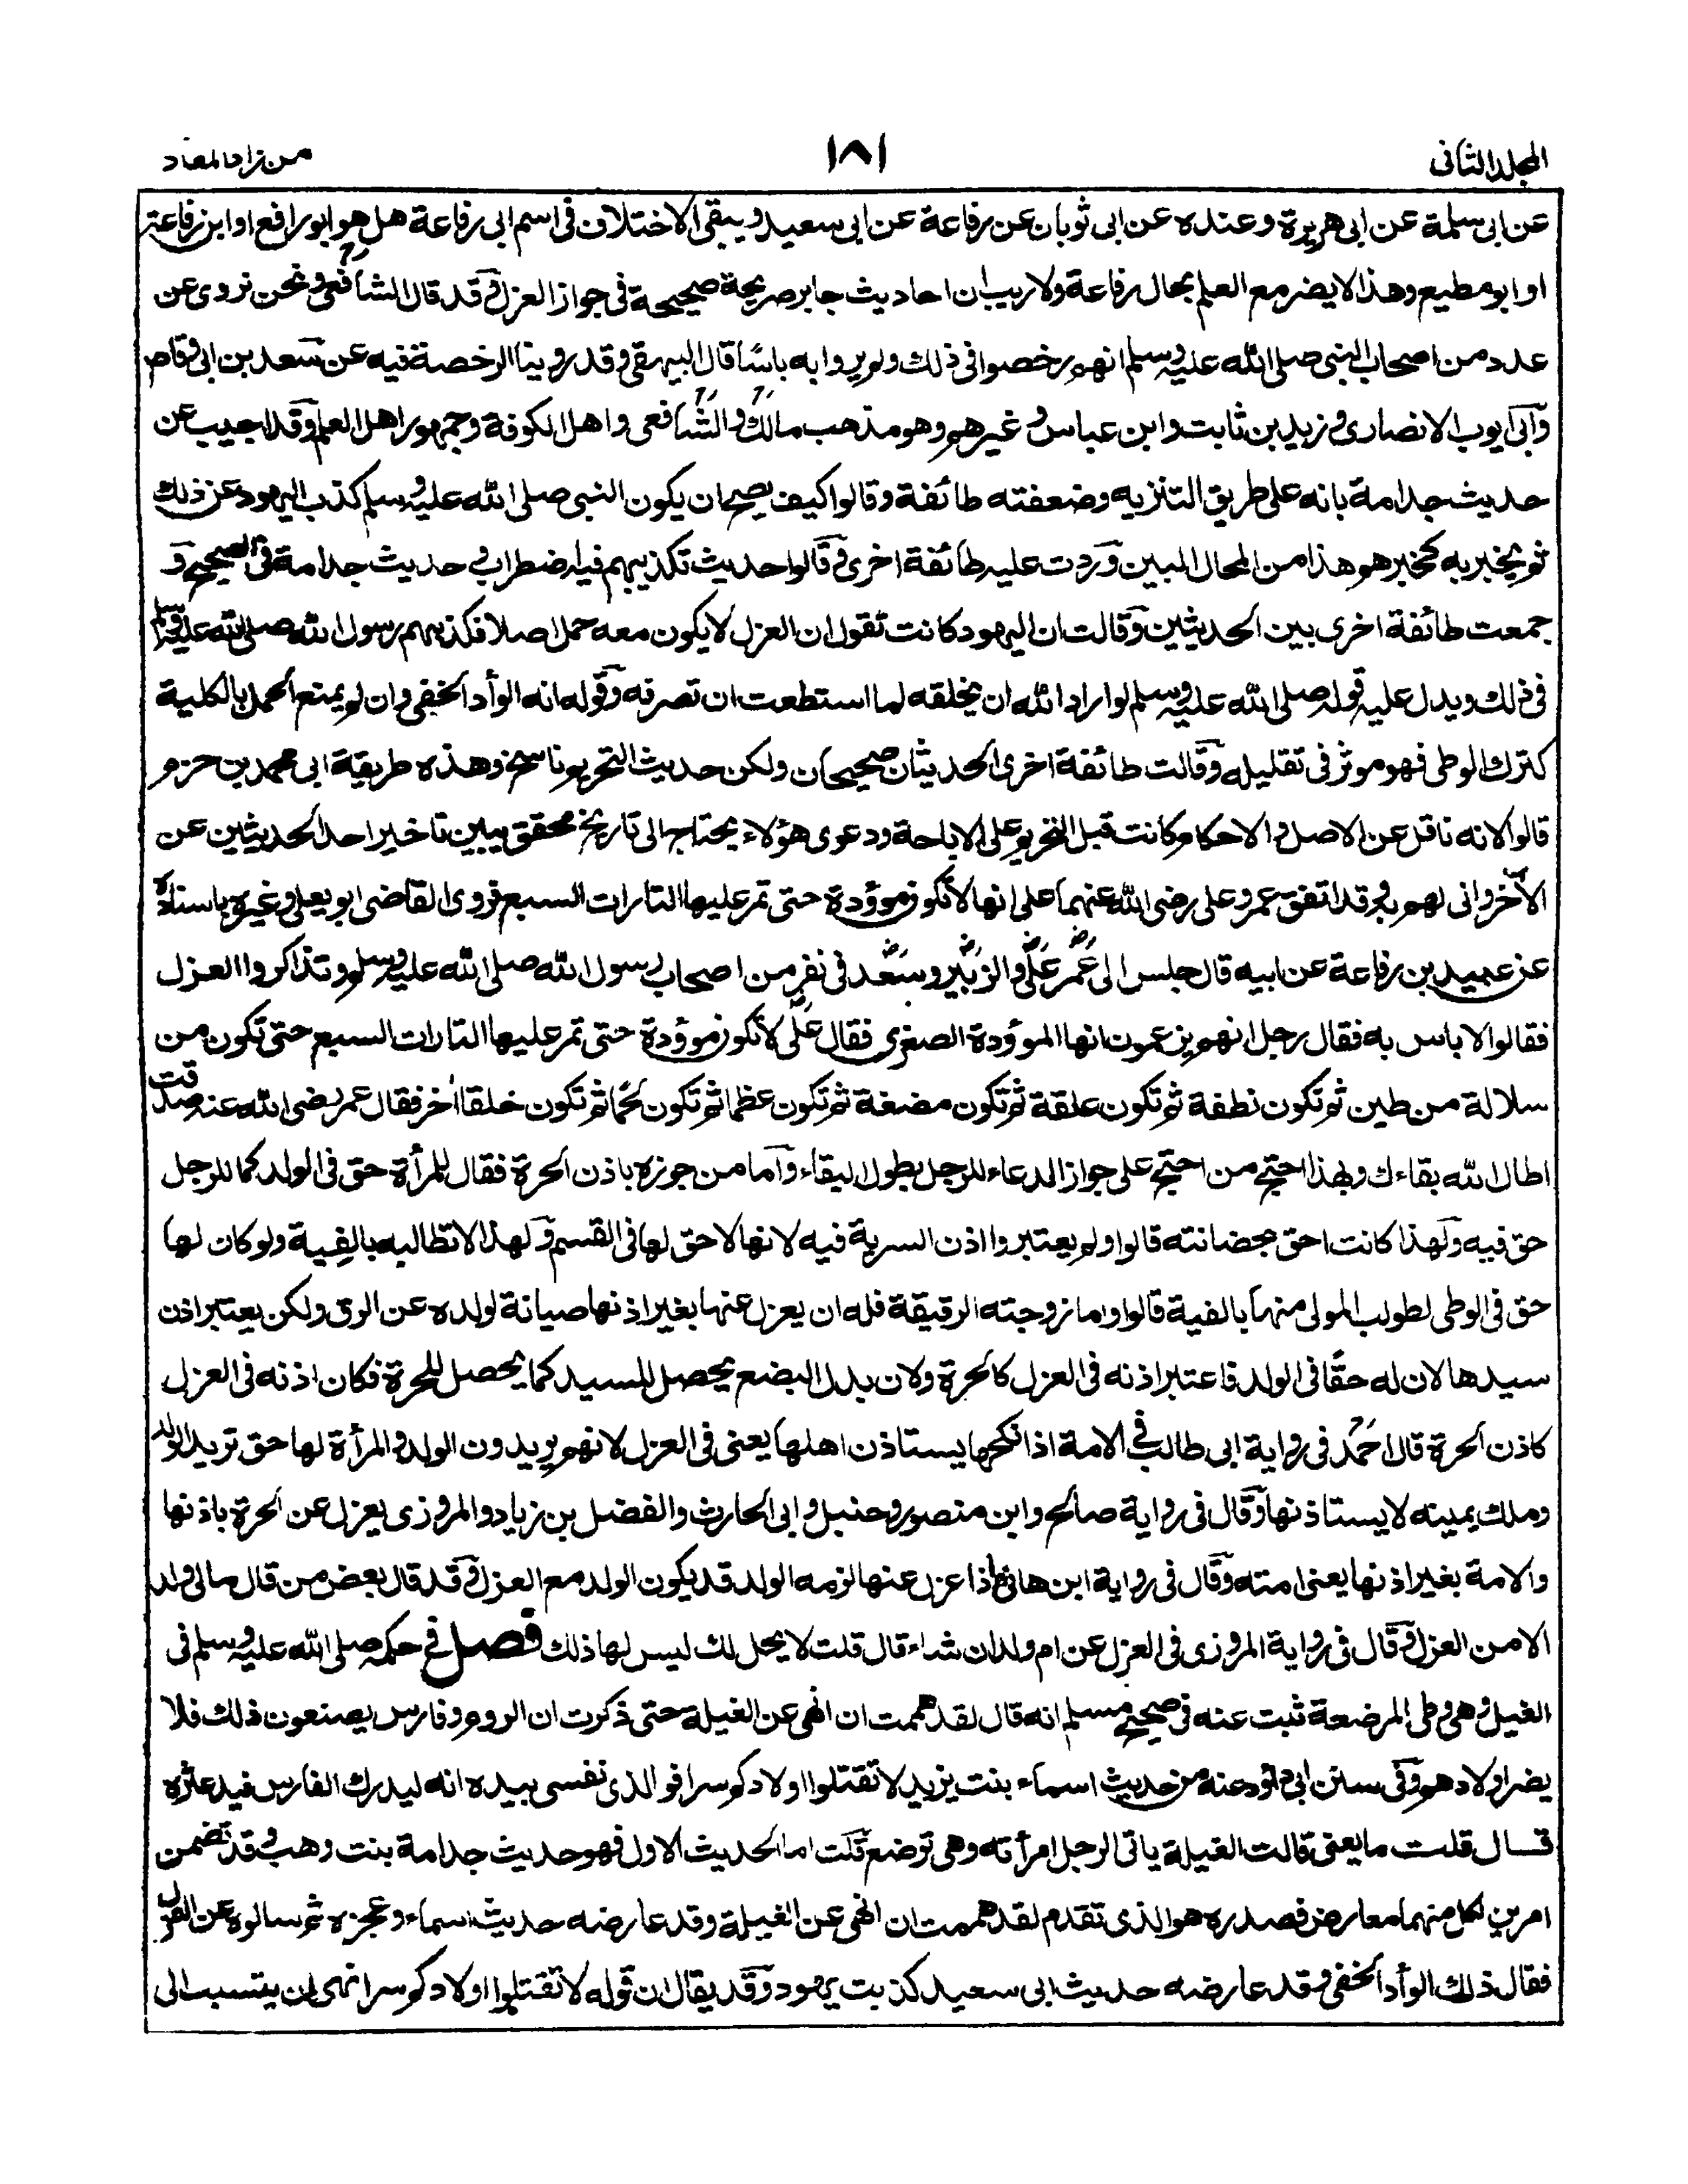 المجلد الثانى
١٨١
من زاد المعاد
عن ابى سلمة عن ابى هريرة وعنده عن ابى ثوبان عن رفاعة عن ابى سعيد ويبقى الاختلاف فى اسم ابى رفاعة هل هو ابو رافع او ابن رفاعة
او ابو مطيع وهذا لا يضر مع العلم بحال رفاعة ولا ريب ان احاديث جابر صريحة صحيحة فى جواز العزل وقد قال الشافعى ونحن نروى عن
عدد من اصحاب النبى صلى الله عليه وسلم انهم رخصوا فى ذلك ولم يروا به باسًا قال البيهقى وقد روينا الرخصة فيه عن سعد بن ابى وقاص
وابى ايوب الانصارى وزيد بن ثابت وابن عباس وغيرهم وهو مذهب مالك والشافعى واهل الكوفة وجمهور اهل العلم وقد اجيب عن
حديث جدامة بانه على طريق التنزيه وضعفته طائفة وقالوا كيف يصح ان يكون النبى صلى الله عليه وسلم كذب اليهود عن ذلك
ثم يخبر به كخبرهم هذا من المحال المبين وردت عليه طائفة اخرى وقالوا حديث تكذيبهم فيه اضطراب وحديث جدامة فى الصحيح و
جمعت طائفة اخرى بين الحديثين وقالت ان اليهود كانت تقول ان العزل لا يكون معه حمل اصلا فكذبهم رسول الله صلى الله عليه وسلم
فى ذلك ويدل عليه قوله صلى الله عليه وسلم لو اراد الله ان يخلقه لما استطعت ان تصرفه وقوله انه الوأد الخفى وان لم يمنع الحمل بالكلية
كترك الوطى فهو موثر فى تقليله وقالت طائفة اخرى الحديثان صحيحان ولكن حديث التحريم ناسخ وهذه طريقة ابى محمد بن حزم
قالوا لانه ناقل عن الاصل والاحكام كانت قبل التحريم على الاباحة ودعوى هؤلاء يحتاج الى تاريخ محقق يبين تاخير احد الحديثين عن
الآخر وانى لهم به وقد اتفق عمر وعلى رضى الله عنهما على انها لا تكون موؤدة حتى تمر عليها التارات السبع فروى القاضى ابو يعلى وغيره باسناده
عن عبيد بن رفاعة عن ابيه قال جلس الى عمر على والزبير وسعد فى نفر من اصحاب رسول الله صلى الله عليه وسلم وتذاكروا العزل
فقالوا لا باس به فقال رجل انهم يزعمون انها الموؤدة الصغرى فقال على لا تكون موؤدة حتى تمر عليها التارات السبع حتى تكون من
سلالة من طين ثم تكون نطفة ثم تكون علقة ثم تكون مضغة ثم تكون عظما ثم تكون لحما ثم تكون خلقا آخر فقال عمر رضى الله عنه صدقت
اطال الله بقاءك وبهذا احتج من احتج على جواز الدعاء للرجل بطول البقاء واما من جوزه باذن الحرة فقال للمرأة حق فى الولد كما للرجل
حق فيه ولهذا كانت احق بحضانته قالوا ولم يعتبروا اذن السرية فيه لانها لا حق لها فى القسم ولهذا لا تطالبه بالفية ولو كان لها
حق فى الوطى لطولب المولى منها بالفية قالوا واما زوجته الرقيقة فله ان يعزل عنها بغير اذنها صيانة لولده عن الرق ولكن يعتبر اذن
سيدها لان له حقًا فى الولد فاعتبر اذنه فى العزل كالحرة ولان بدل البضع يحصل للسيد كما يحصل للحرة فكان اذنه فى العزل
كاذن الحرة قال احمد فى رواية ابى طالب فى الامة اذا نكحها يستاذن اهلها يعنى فى العزل لانهم يريدون الولد والمرأة لها حق تريد الولد
وملك يمينه لا يستاذنها وقال فى رواية صالح وابن منصور وحنبل وابى الحارث والفضل بن زياد والمروزى يعزل عن الحرة باذنها
والامة بغير اذنها يعنى امته وقال فى رواية ابن هانئ اذا عزل عنها لزمه الولد قد يكون الولد مع العزل وقد قال بعض من قال مالى ولد
الا من العزل وقال فى رواية المروزى فى العزل عن ام ولد ان شاء قال قلت لا يحل لك ليس لها ذلك فصل فى حكمه صلى الله عليه وسلم فى
الغيل وهى وطى المرضعة ثبت عنه فى صحيح مسلم انه قال لقد هممت ان انهى عن الغيلة حتى ذكرت ان الروم وفارس يصنعون ذلك فلا
يضر اولادهم وفى سنن ابى داود عنه من حديث اسماء بنت يزيد لا تقتلوا اولادكم سرا فو الذى نفسى بيده انه ليدرك الفارس فيدعثره
قال قلت ما يعنى قالت الغيلة ياتى الرجل امرأته وهى توضع قلت اما الحديث الاول فهو حديث جدامة بنت وهب وقد تضمن
امرين لكل منهما معارض فصدره هو الذى تقدم لقد هممت ان انهى عن الغيلة وقد عارضه حديث اسماء وعجزه ثم سالوه عن العزل
فقال ذلك الوأد الخفى وقد عارضه حديث ابى سعيد كذبت يهود وقد يقال ان قوله لا تقتلوا اولادكم سرا نهى ان يتسبب الى